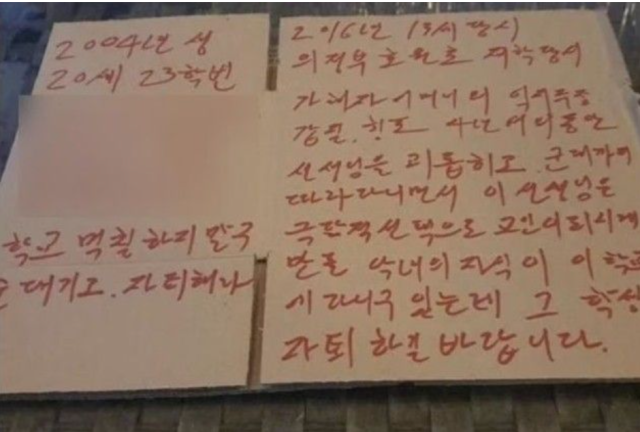 2004년 생
20세 23학번
학교 먹칠하지 말구
대기고. 자퇴해라
2016년 13세 당시
의정부 호원초 재학당시
가해자 어머니의 억지주장
갑질. 횡포 4년여의 동안
선생님을 괴롭히고. 군대까지
따라다니면서 이 선생님은
극단적선택으로 고인이되시게
만든 악녀의 자식이 이 학교
에 다니구 있는데 그 학생
자퇴 하길 바랍니다.